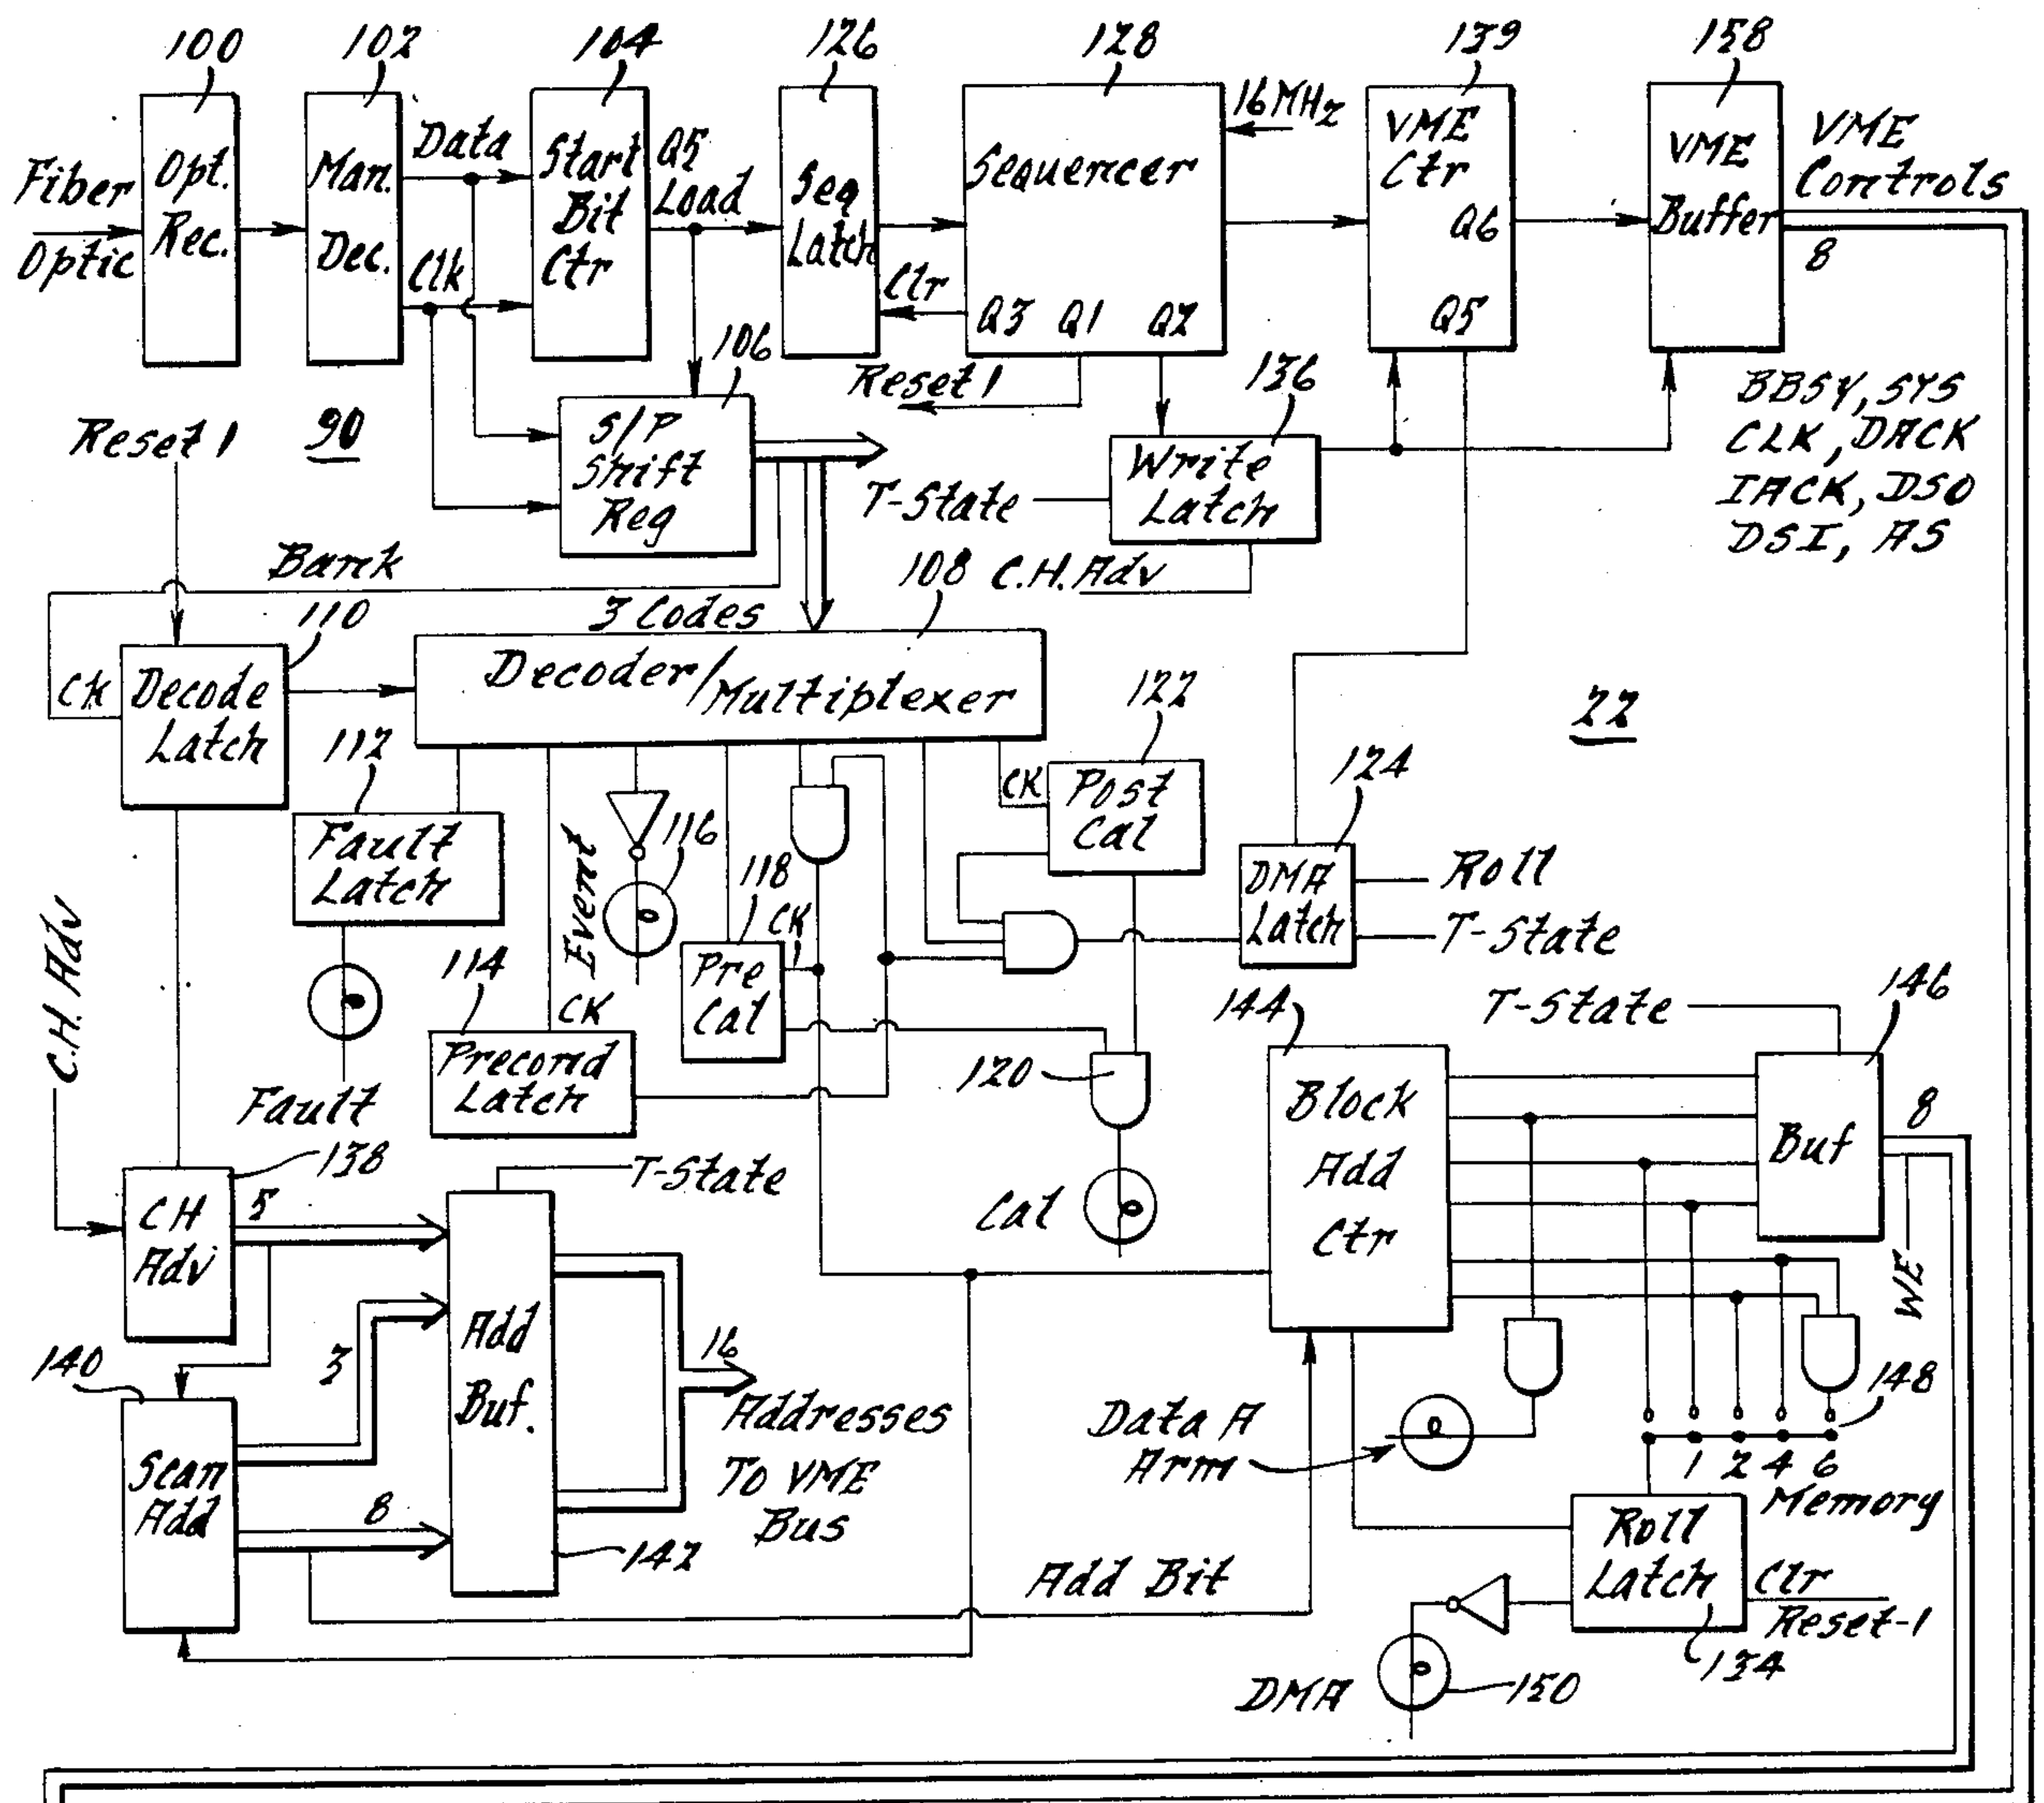 100
102
104
126
128
139
158
Fiber
Optic
Opt.
Rec.
Man.
Dec.
Data
Clk
Start
Bit
Ctr
Q5
Load
Seq
Latch
Clr
Sequencer
Q3 Q1 Q2
16 MHz
VME
Ctr
Q6
Q5
VME
Buffer
VME
Controls
8
Reset 1
90
106
S/P
Shift
Reg
Reset 1
136
Write
Latch
T-State
C.H. Adv
BBSY, SYS
CLK, DACK
IACK, DSO
DSI, AS
Bank
3 Codes
108
110
CK
Decode
Latch
Decoder/Multiplexer
122
22
112
Fault
Latch
Event
116
118
CK
CK
Post
Cal
124
DMA
Latch
Roll
T-State
C.H. Adv
114
CK
Precond
Latch
Pre
Cal
Fault
120
Cal
144
T-State
146
Block
Add
Ctr
Buf
8
WE
138
CH
Adv
5
T-State
3
140
Scan
Add
8
Add
Buf.
142
16
Addresses
To VME
Bus
Data A
Arm
148
1 2 4 6
Memory
Add Bit
Roll
Latch
Clr
Reset-1
134
DMA
150